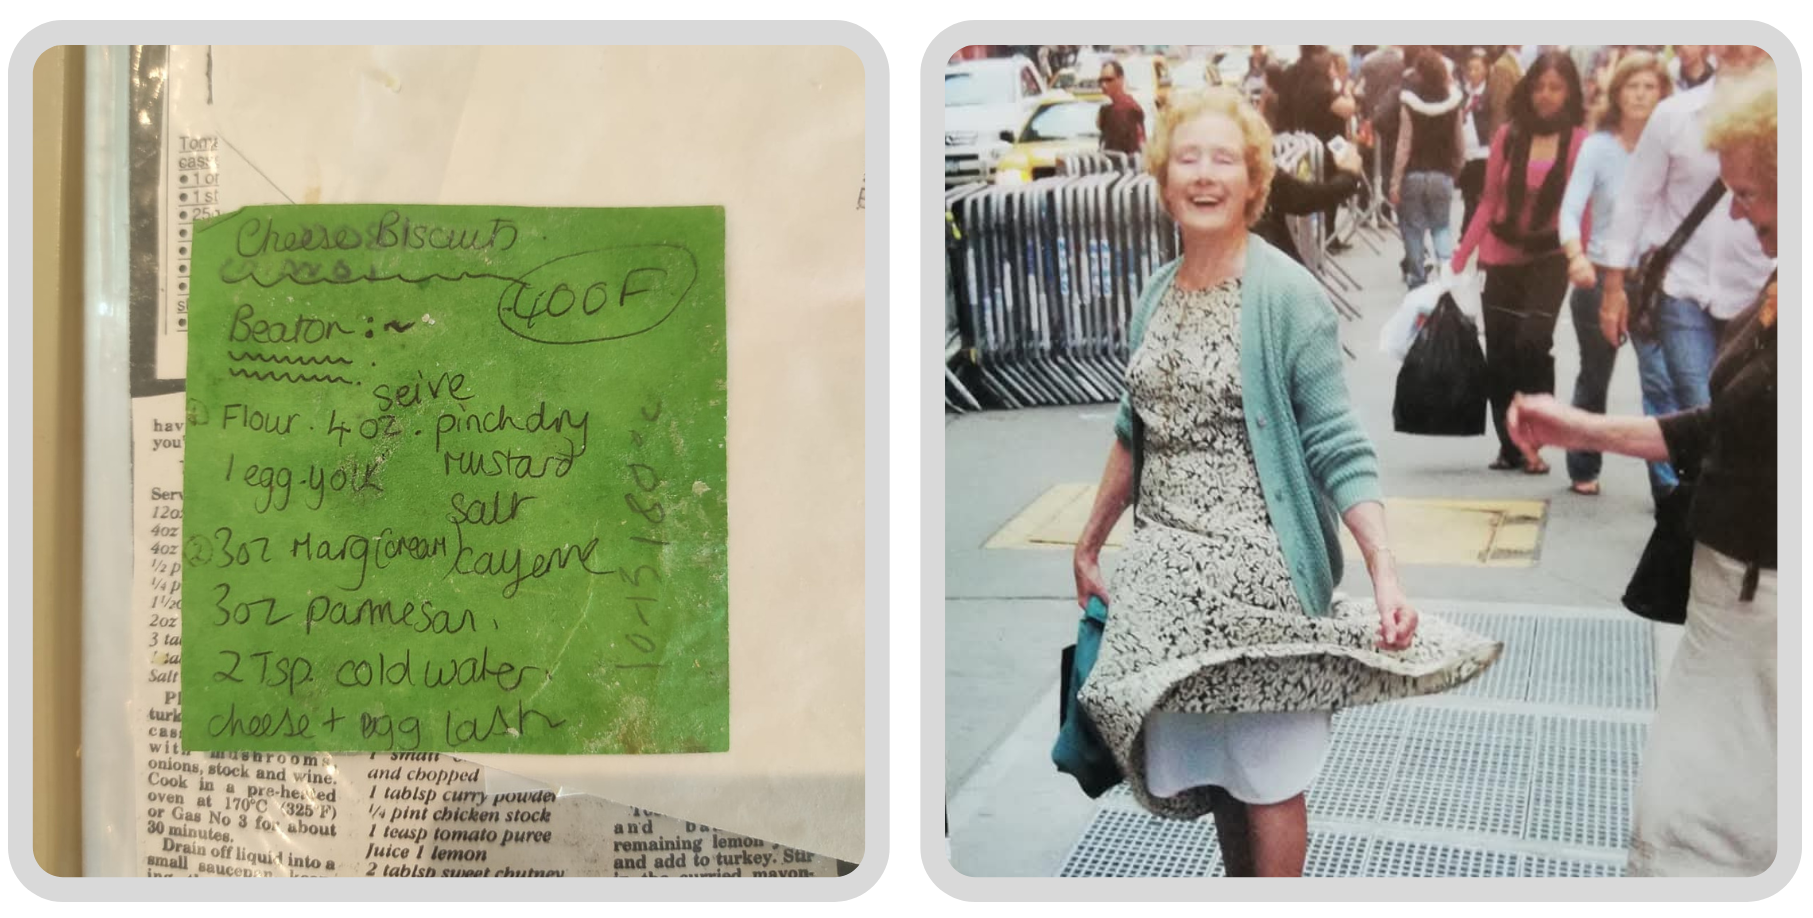 Cheese Biscuits
400F
Beaton :~
seive
① Flour . 4 oz . pinch dry
mustard
1 egg-yolk
salt
② 3oz Marg (cream) cayenne
3oz parmesan.
2 Tsp. cold water.
cheese + egg last
10-15 180°C
cass
• 1 or
• 1 st
hav
you'
Serv
12oz
4oz
4oz
½ p
¼ p
2oz
3 ta
Salt
turk
cass
with mushrooms,
onions, stock and wine.
Cook in a pre-heated
oven at 170°C (325°F)
or Gas No 3 for about
30 minutes.
Drain off liquid into a
small saucepan
1 small
and chopped
1 tablsp curry powder
¼ pint chicken stock
1 teasp tomato puree
Juice 1 lemon
2 tablsp sweet chutney
and
remaining lemon
and add to turkey. Stir